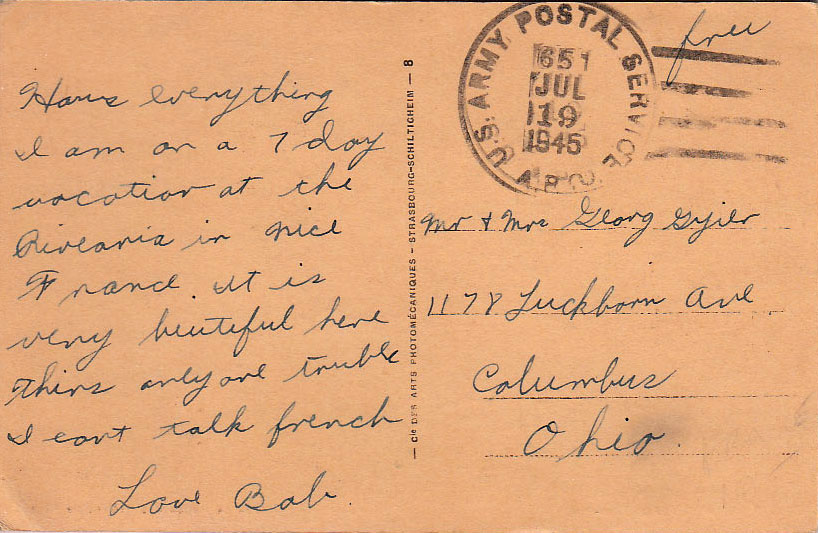 Hows everything
I am on a 7 day
vacation at the
Riveania in nice
France. It is
very beuteful here
thirs only one truble
I cant talk french
Love Bob.
— Cie DES ARTS PHOTOMÉCANIQUES - STRASBOURG-SCHILTIGHEIM — 8
U.S. ARMY POSTAL SERVICE
A.P.O.
651
JUL
19
1945
free
Mr & Mrs Georg
1178 Luckhorn Ave
Columbus
Ohio.